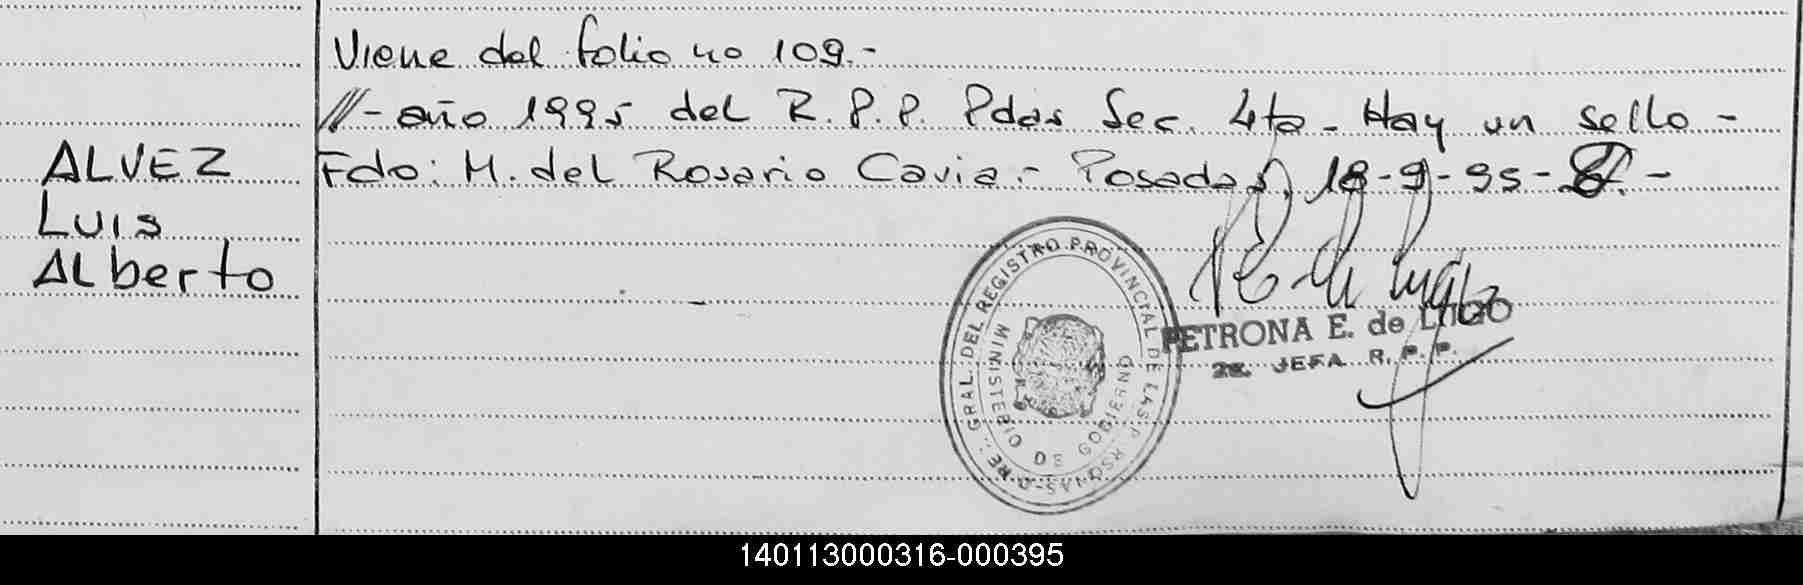 Viene del folio no 109.-
///- año 1995 del R.P.P. Pdas Sec. 4ta - Hay un sello -
Fdo: M. del Rosario Cavia.- Posadas, 18-9-95-
ALVEZ
LUIS
ALberto
GRAL. DEL REGISTRO PROVINCIAL DE LAS PERSONAS
MINISTERIO DE GOBIERNO
PETRONA E. de LUGO
JEFA R. P. P.
140113000316-000395